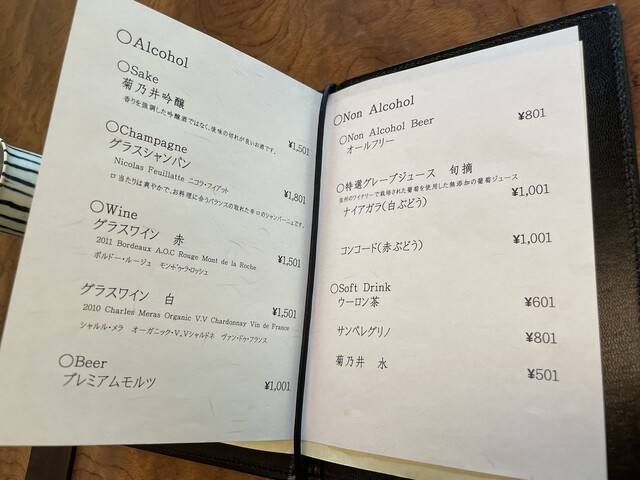 ○Alcohol
○Sake
菊乃井吟醸
香りを強調した吟醸酒ではなく、後味の切れが良いお酒です。
¥1,501
○Champagne
グラスシャンパン
Nicolas Feuillatte ニコラ・フィアット
¥1,801
口当たりは爽やかで、お料理に合うバランスの取れた辛口のシャンパーニュです。
○Wine
グラスワイン 赤
2011 Bordeaux A.O.C Rouge Mont de la Roche
¥1,501
ボルドー・ルージュ モン・ドゥ・ラ・ロッシェ
グラスワイン 白
¥1,501
2010 Charles Meras Organic V.V Chardonnay Vin de France
シャルル・メラ オーガニック・V.Vシャルドネ ヴァン・ドゥ・フランス
○Beer
プレミアムモルツ
¥1,001
○Non Alcohol
○Non Alcohol Beer
¥801
オールフリー
○特選グレープジュース 旬摘
信州のワイナリーで栽培された葡萄を使用した無添加の葡萄ジュース
ナイアガラ(白ぶどう)
¥1,001
コンコード(赤ぶどう)
¥1,001
○Soft Drink
ウーロン茶
¥601
サンペレグリノ
¥801
菊乃井 水
¥501